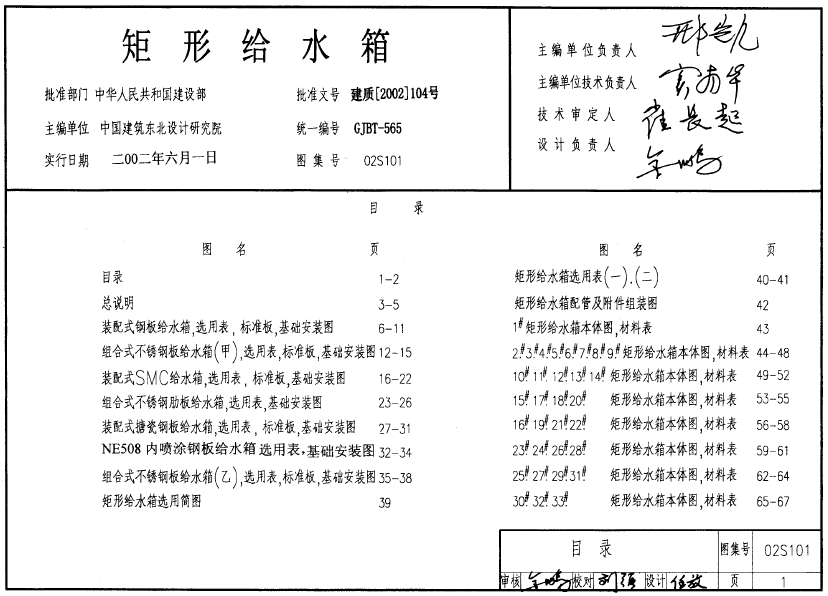 矩形给水箱
批准部门 中华人民共和国建设部 批准文号 建质[2002]104号
主编单位 中国建筑东北设计研究院 统一编号 GJBT-565
实行日期 二00二年六月一日 图集号 02S101
主编单位负责人
主编单位技术负责人
技术审定人 崔长起
设计负责人
目 录
图 名 页
目录 1-2
总说明 3-5
装配式钢板给水箱,选用表,标准板,基础安装图 6-11
组合式不锈钢板给水箱(甲),选用表,标准板,基础安装图 12-15
装配式SMC给水箱,选用表,标准板,基础安装图 16-22
组合式不锈钢肋板给水箱,选用表,基础安装图 23-26
装配式搪瓷钢板给水箱,选用表,标准板,基础安装图 27-31
NE508内喷涂钢板给水箱选用表,基础安装图 32-34
组合式不锈钢板给水箱(乙),选用表,标准板,基础安装图 35-38
矩形给水箱选用简图 39
图 名 页
矩形给水箱选用表(一).(二) 40-41
矩形给水箱配管及附件组装图 42
1#矩形给水箱本体图,材料表 43
2#.3#.4#.5#.6#.7#.8#.9#矩形给水箱本体图,材料表 44-48
10#.11#.12#.13#.14#矩形给水箱本体图,材料表 49-52
15#.17#.18#.20# 矩形给水箱本体图,材料表 53-55
16#.19#.21#.22# 矩形给水箱本体图,材料表 56-58
23#.24#.26#.28# 矩形给水箱本体图,材料表 59-61
25#.27#.29#.31# 矩形给水箱本体图,材料表 62-64
30#.32#.33# 矩形给水箱本体图,材料表 65-67
目 录 图集号 02S101
审核 校对 设计 页 1